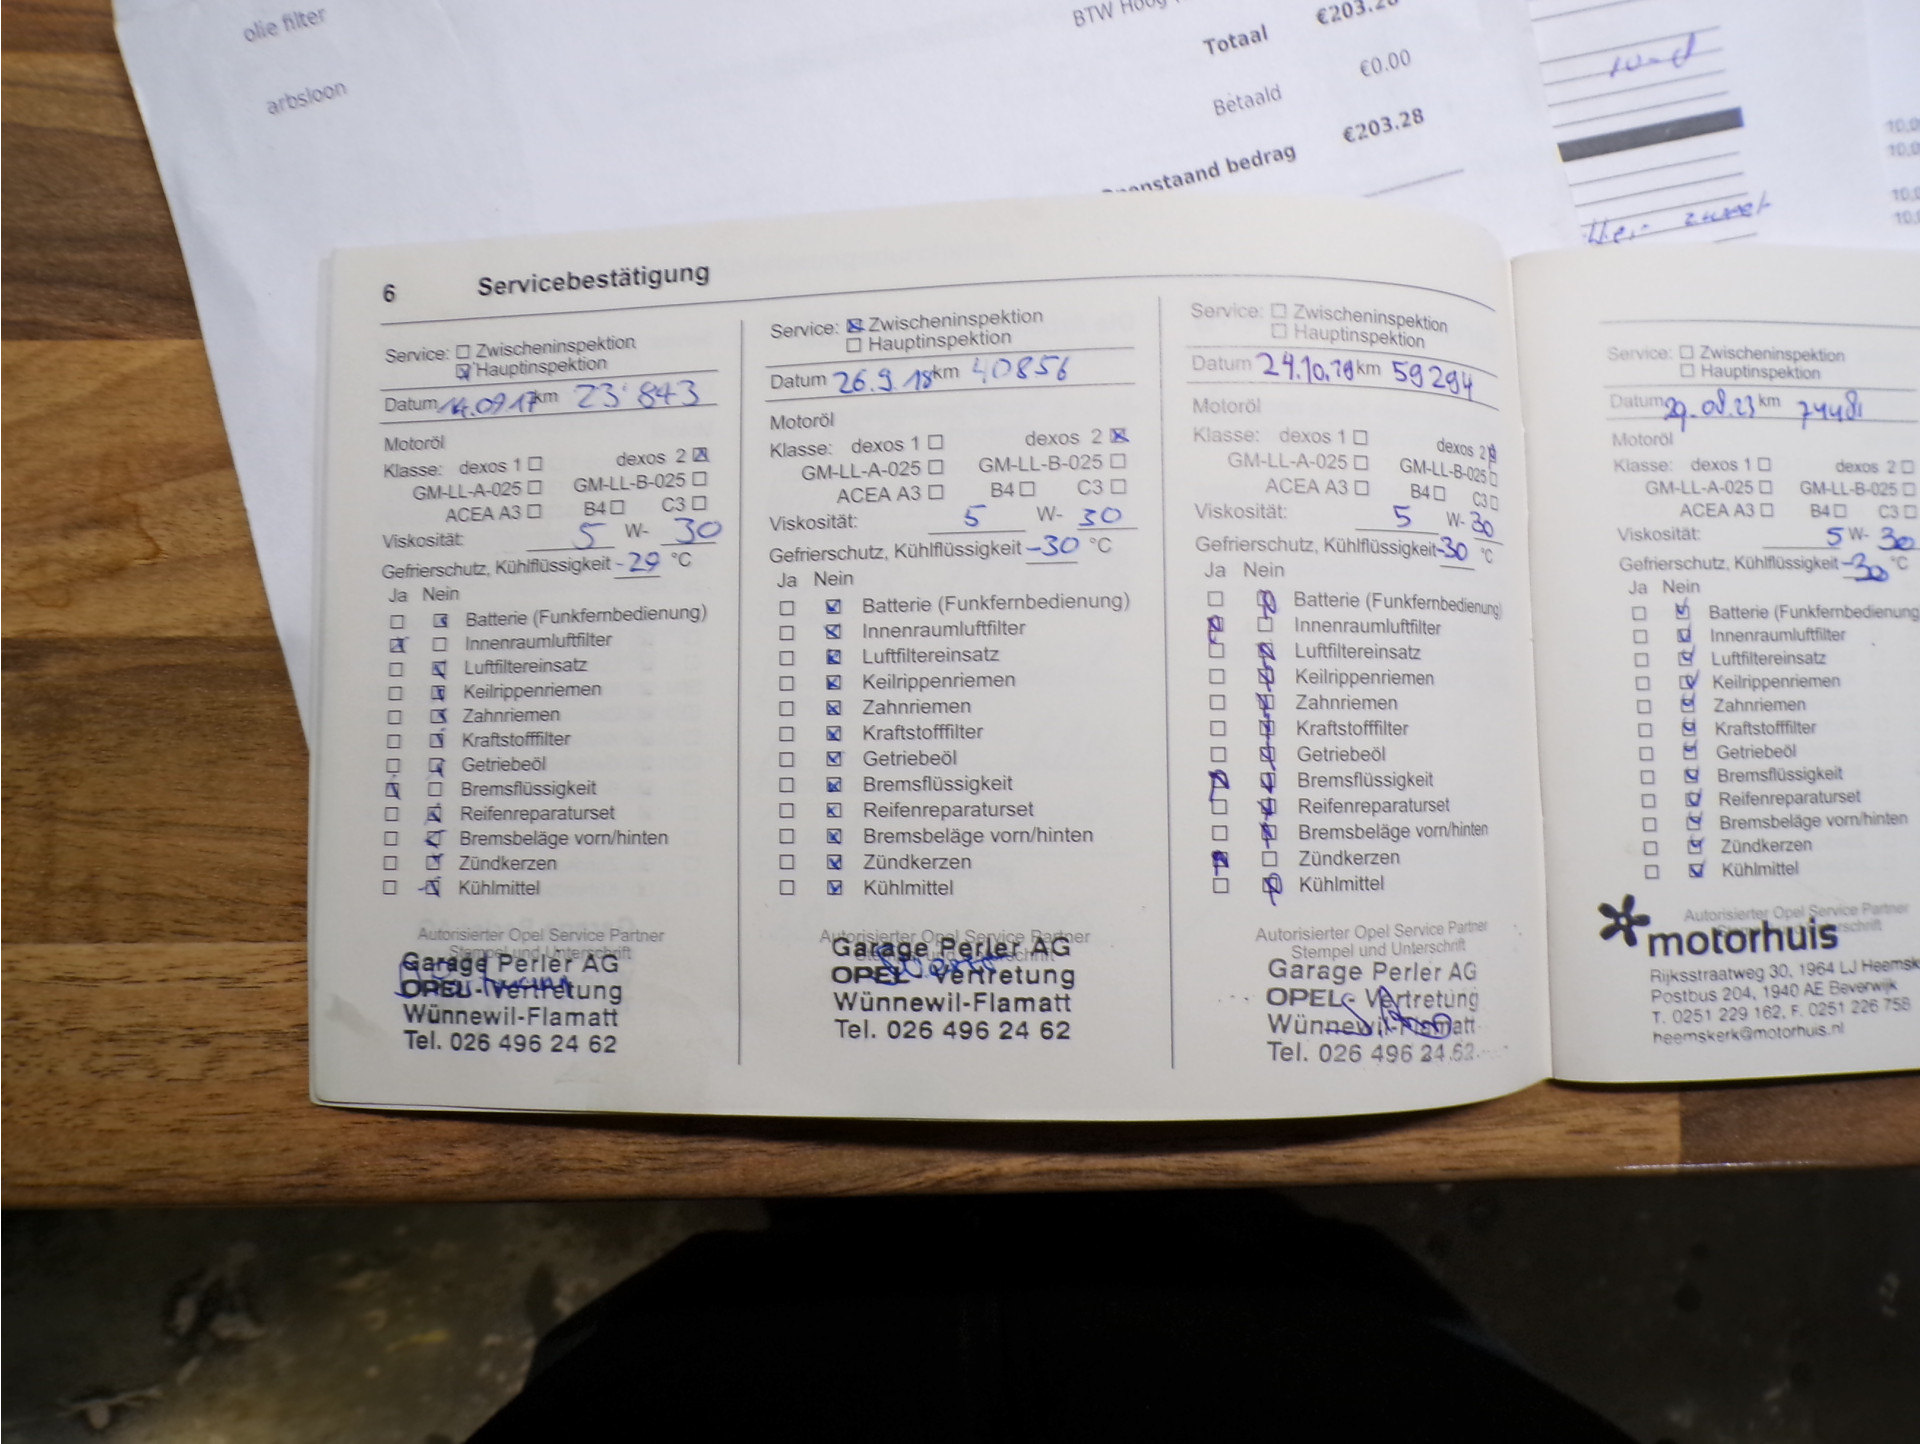 olie filter
arbsloon
BTW Hoog
€203.28
Totaal
€0.00
Betaald
€203.28
Openstaand bedrag
10,0
10,0
10,0
10,0
6 Servicebestätigung
Service: ☐ Zwischeninspektion
☒ Hauptinspektion
Datum 14.09.17 km 23'843
Motoröl
Klasse: dexos 1 ☐ dexos 2 ☒
GM-LL-A-025 ☐ GM-LL-B-025 ☐
ACEA A3 ☐ B4 ☐ C3 ☐
Viskosität: 5 W- 30
Gefrierschutz, Kühlflüssigkeit -29 °C
Ja Nein
☐ ☒ Batterie (Funkfernbedienung)
☒ ☐ Innenraumluftfilter
☐ ☒ Luftfiltereinsatz
☐ ☒ Keilrippenriemen
☐ ☒ Zahnriemen
☐ ☒ Kraftstofffilter
☐ ☒ Getriebeöl
☒ ☐ Bremsflüssigkeit
☐ ☒ Reifenreparaturset
☐ ☒ Bremsbeläge vorn/hinten
☐ ☒ Zündkerzen
☐ ☒ Kühlmittel
Autorisierter Opel Service Partner
Stempel und Unterschrift
Garage Perler AG
OPEL - Vertretung
Wünnewil-Flamatt
Tel. 026 496 24 62
Service: ☒ Zwischeninspektion
☐ Hauptinspektion
Datum 26.9.18 km 40856
Motoröl
Klasse: dexos 1 ☐ dexos 2 ☒
GM-LL-A-025 ☐ GM-LL-B-025 ☐
ACEA A3 ☐ B4 ☐ C3 ☐
Viskosität: 5 W- 30
Gefrierschutz, Kühlflüssigkeit -30 °C
Ja Nein
☐ ☒ Batterie (Funkfernbedienung)
☐ ☒ Innenraumluftfilter
☐ ☒ Luftfiltereinsatz
☐ ☒ Keilrippenriemen
☐ ☒ Zahnriemen
☐ ☒ Kraftstofffilter
☐ ☒ Getriebeöl
☐ ☒ Bremsflüssigkeit
☐ ☒ Reifenreparaturset
☐ ☒ Bremsbeläge vorn/hinten
☐ ☒ Zündkerzen
☐ ☒ Kühlmittel
Autorisierter Opel Service Partner
Garage Perler AG
OPEL - Vertretung
Wünnewil-Flamatt
Tel. 026 496 24 62
Service: ☐ Zwischeninspektion
☐ Hauptinspektion
Datum 24.10.19 km 59294
Motoröl
Klasse: dexos 1 ☐ dexos 2 ☒
GM-LL-A-025 ☐ GM-LL-B-025 ☐
ACEA A3 ☐ B4 ☐ C3 ☐
Viskosität: 5 W- 30
Gefrierschutz, Kühlflüssigkeit -30 °C
Ja Nein
☐ ☒ Batterie (Funkfernbedienung)
☒ ☐ Innenraumluftfilter
☐ ☒ Luftfiltereinsatz
☐ ☒ Keilrippenriemen
☐ ☒ Zahnriemen
☐ ☒ Kraftstofffilter
☐ ☒ Getriebeöl
☒ ☒ Bremsflüssigkeit
☐ ☒ Reifenreparaturset
☐ ☒ Bremsbeläge vorn/hinten
☒ ☐ Zündkerzen
☐ ☒ Kühlmittel
Autorisierter Opel Service Partner
Stempel und Unterschrift
Garage Perler AG
OPEL - Vertretung
Wünnewil-Flamatt
Tel. 026 496 24 62
Service: ☐ Zwischeninspektion
☐ Hauptinspektion
Datum 29.08.23 km 74481
Motoröl
Klasse: dexos 1 ☐ dexos 2 ☐
GM-LL-A-025 ☐ GM-LL-B-025 ☐
ACEA A3 ☐ B4 ☐ C3 ☐
Viskosität: 5 W- 30
Gefrierschutz, Kühlflüssigkeit -30 °C
Ja Nein
☐ ☒ Batterie (Funkfernbedienung
☐ ☒ Innenraumluftfilter
☐ ☒ Luftfiltereinsatz
☐ ☒ Keilrippenriemen
☐ ☒ Zahnriemen
☐ ☒ Kraftstofffilter
☐ ☒ Getriebeöl
☐ ☒ Bremsflüssigkeit
☐ ☒ Reifenreparaturset
☐ ☒ Bremsbeläge vorn/hinten
☐ ☒ Zündkerzen
☐ ☒ Kühlmittel
Autorisierter Opel Service Partner
motorhuis
Rijksstraatweg 30, 1964 LJ Heemsk
Postbus 204, 1940 AE Beverwijk
T. 0251 229 162, F. 0251 226 758
heemskerk@motorhuis.nl